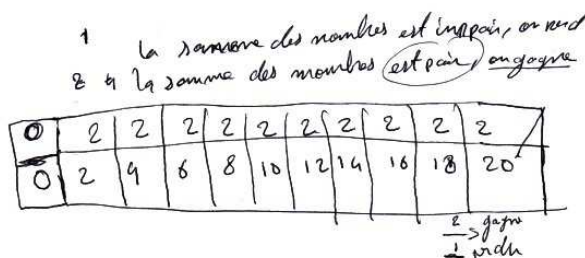 1 la somme des nombres est impair, on perd
2 si la somme des nombres est pair, on gagne
0 2 2 2 2 2 2 2 2 2 2
0 2 4 6 8 10 12 14 16 18 20
2 > gagne
1 perdu